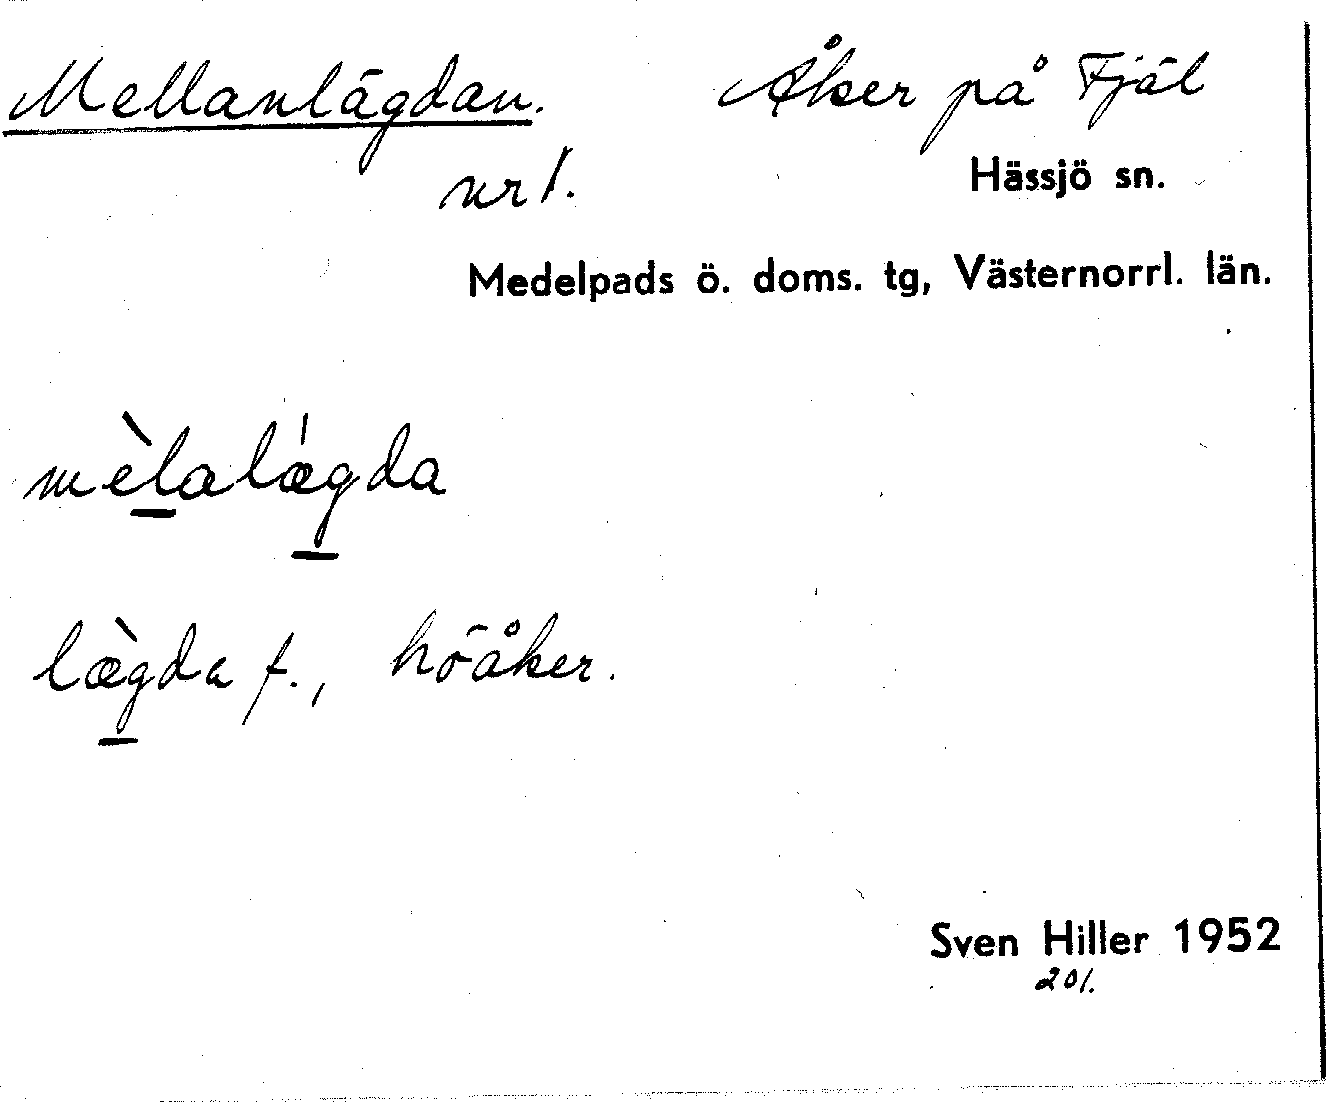 Mellanlägdan. Åker på Fjäl
nr 1. Hässjö sn.
Medelpads ö. doms. tg, Västernorrl. län.
mèlalǽgda
læ̀gda f., höåker.
Sven Hiller 1952
201.